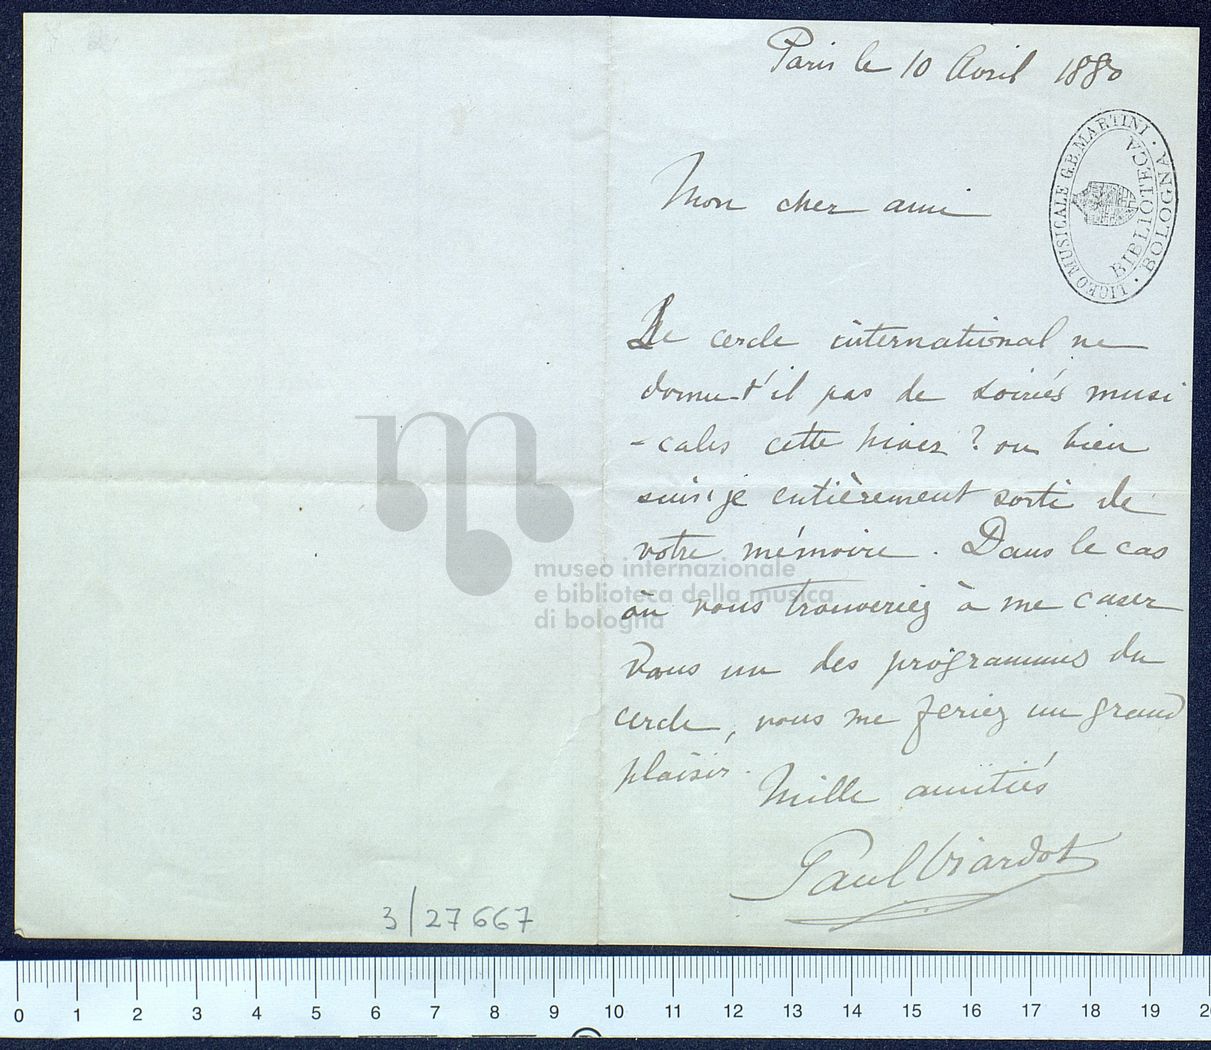 Paris le 10 Avril 1880
LICEO MUSICALE G.B. MARTINI · BOLOGNA ·
BIBLIOTECA
Mon cher ami
Le cercle international ne
donne-t'il pas de soirées musi
-cales cette hiver ? ou bien
suis-je entièrement sorti de
votre mémoire. Dans le cas
où vous trouveriez à me caser
dans un des programmes du
cercle, vous me feriez un grand
plaisir.
Mille amitiés
Paul Viardot
museo internazionale
e biblioteca della musica
di bologna
3/27667
0 1 2 3 4 5 6 7 8 9 10 11 12 13 14 15 16 17 18 19 20